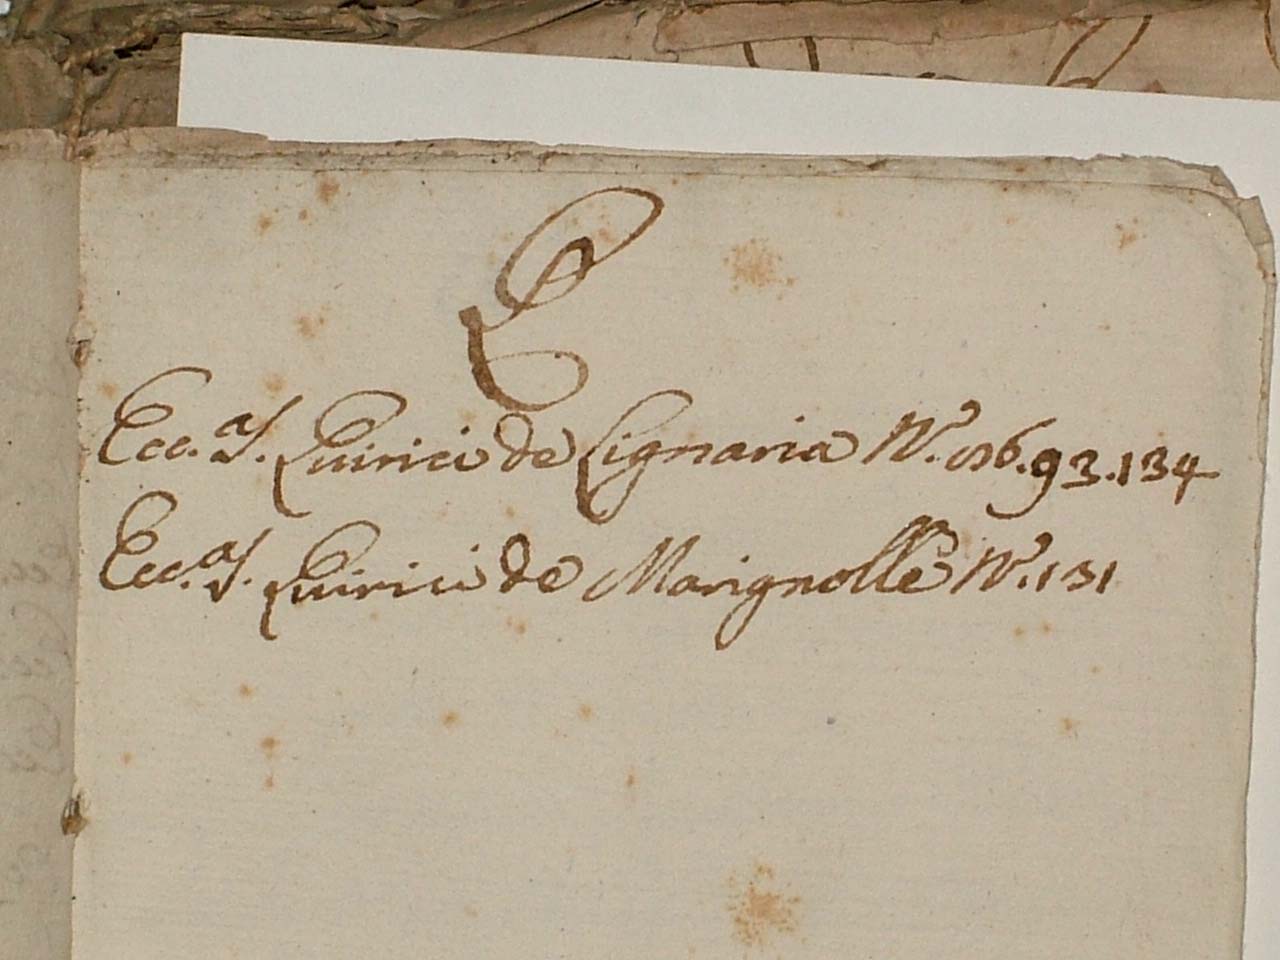 Q
Ecc.a S. Quirici de Lignaria N.o 86. 93. 134
Ecc.a S. Quirici de Marignolle N.o 131